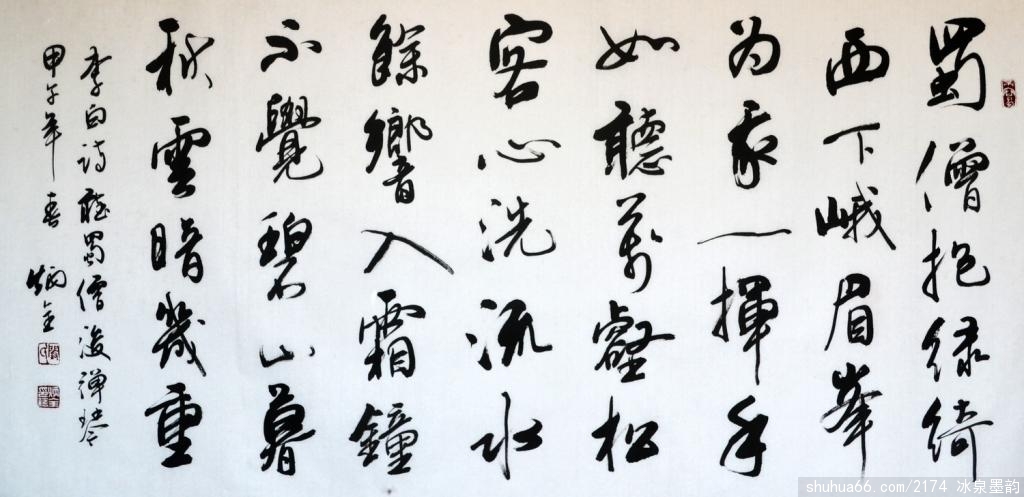 蜀僧抱綠綺
西下峨眉峯
为我一揮手
如聽萬壑松
客心洗流水
餘響入霜鐘
不覺碧山暮
秋雲暗幾重
李白詩聽蜀僧浚彈琴
甲午年春
shuhua66.com/2174 冰泉墨韵